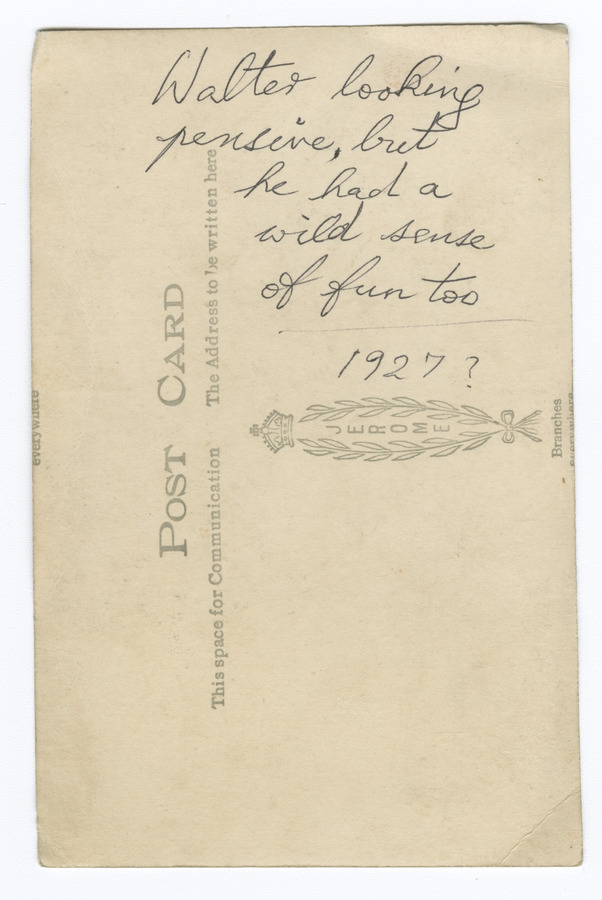 Walter looking
pensive, but
he had a
wild sense
of fun too
1927?
POST CARD
This space for Communication The Address to be written here
JEROME
Branches
everywhere
everywhere